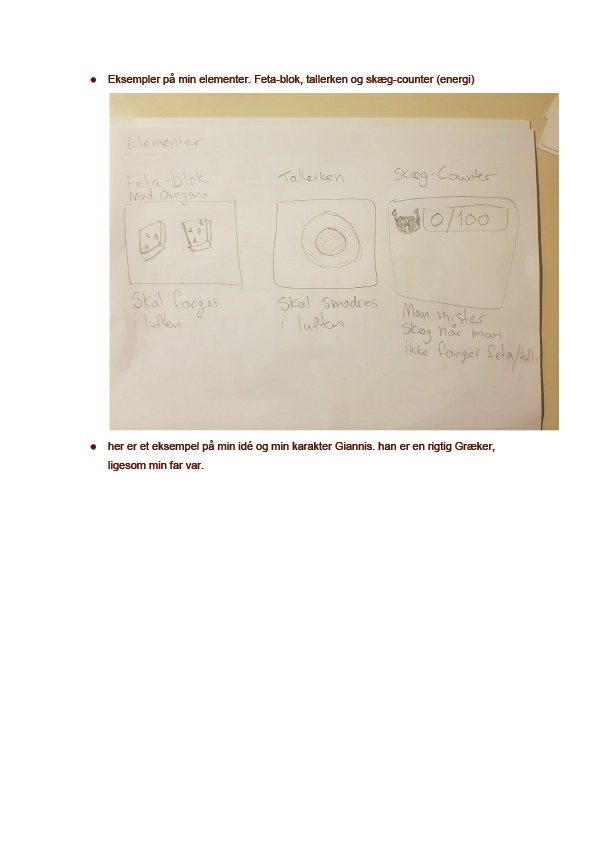 Eksempler på min elementer. Feta-blok, tallerken og skæg-counter (energi)
Elementer
Feta-blok
Med Oregano
Skal fanges
i luften
Tallerken
Skal smadres
i luften
Skæg-Counter
0/100
Man mister
skæg når man
ikke fanger feta/tall.
her er et eksempel på min idé og min karakter Giannis. han er en rigtig Græker,
ligesom min far var.